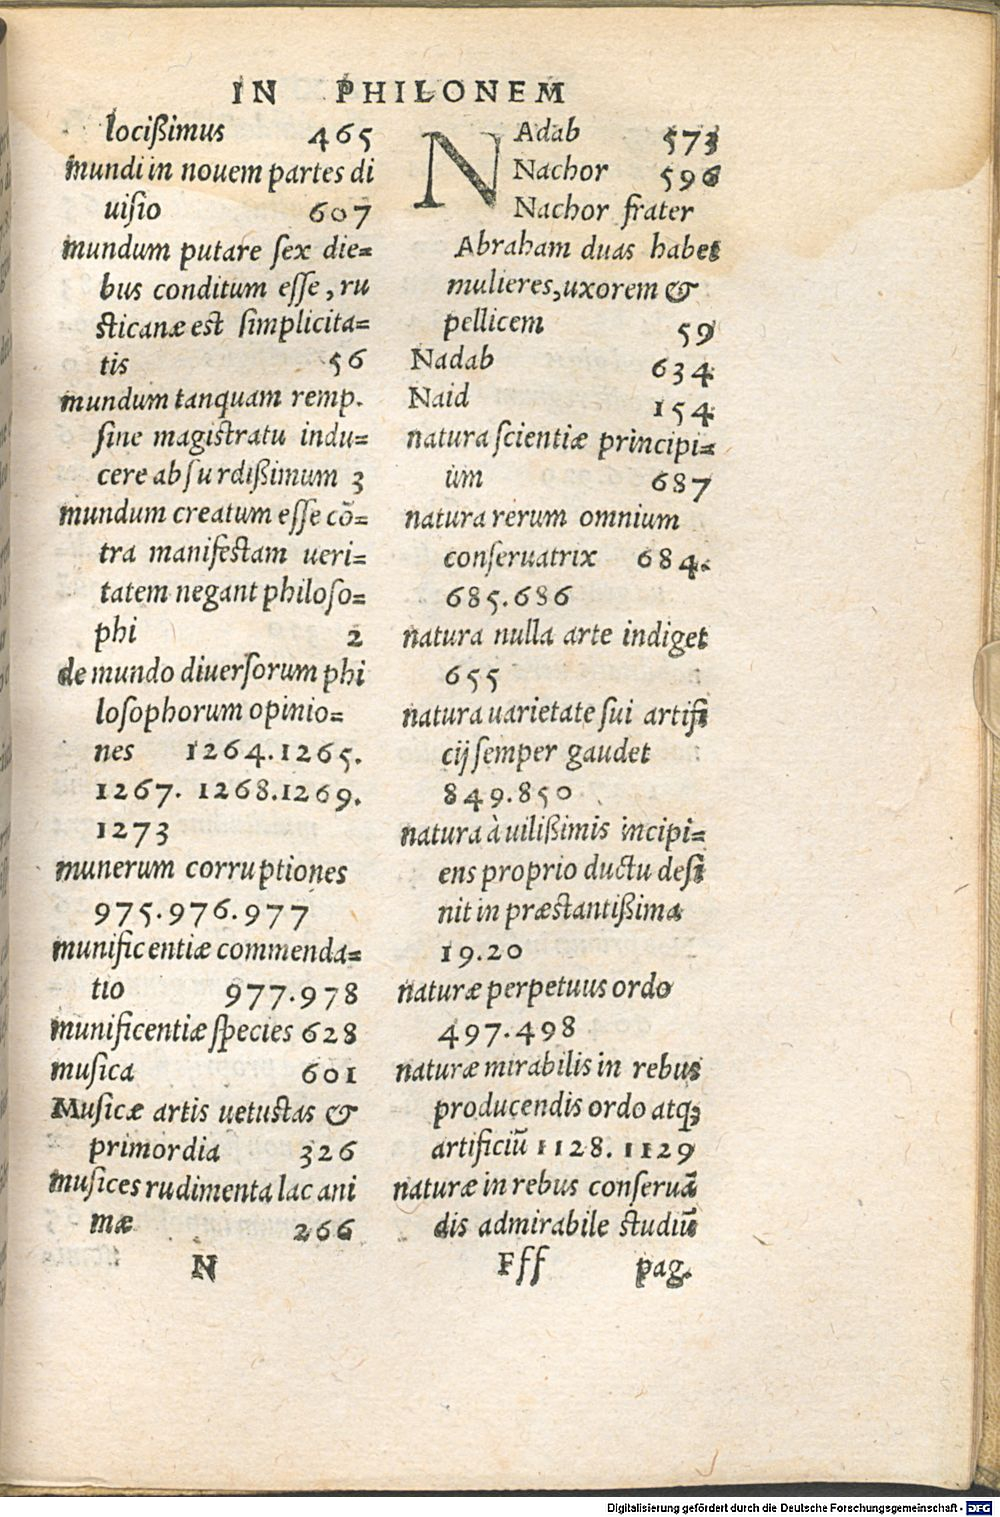 IN PHILONEM
locißimus 465
mundi in nouem partes di
uisio 607
mundum putare ſex die=
bus conditum eſſe, ru
ſticanæ est ſimplicita=
tis 56
mundum tanquam remp.
ſine magistratu indu=
cere abſurdißimum 3
mundum creatum eſſe cō=
tra manifestam ueri=
tatem negant philoſo=
phi 2
de mundo diuerſorum phi
loſophorum opinio=
nes 1264.1265.
1267. 1268.1269.
1273
munerum corruptiones
975.976.977
munificentiæ commenda=
tio 977.978
munificentiæ ſpecies 628
muſica 601
Muſicæ artis uetustas &
primordia 326
muſices rudimenta lac ani
mæ 266
N
NAdab 573
Nachor 596
Nachor frater
Abraham duas habet
mulieres, uxorem &
pellicem 59
Nadab 634
Naid 154
natura ſcientiæ principi=
um 687
natura rerum omnium
conſeruatrix 684.
685.686
natura nulla arte indiget
655
natura uarietate ſui artifi
cij ſemper gaudet
849.850
natura à uilißimis incipi=
ens proprio ductu deſi
nit in præstantißima
19.20
naturæ perpetuus ordo
497.498
naturæ mirabilis in rebus
producendis ordo atqꝫ
artificiū 1128. 1129
naturæ in rebus conſeruā
dis admirabile studiū
Fff pag.
Digitalisierung gefördert durch die Deutsche Forschungsgemeinschaft - DFG